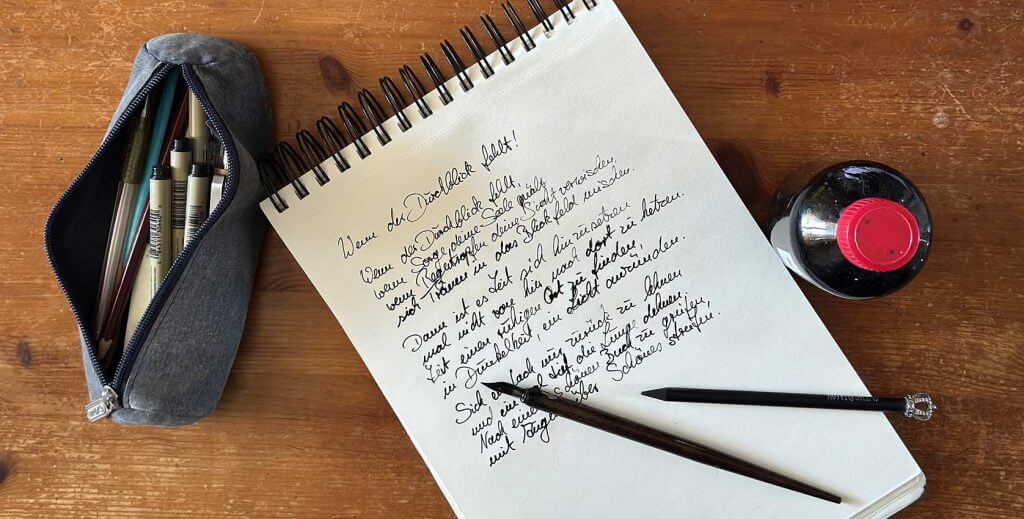 Wenn der Durchblick fehlt!
Wenn der Durchblick fehlt.
wenn Sorge deine Seele quält,
wenn Regentropfen deine Sicht verwischen,
sich Tränen in das Blickfeld mischen.
Dann ist es Zeit sich hinzusetzen
mal nicht von hier nach dort zu hetzen.
Zeit einen ruhigen Ort zu finden,
in Dunkelheit, ein Licht anzünden.
Sich einfach nur zurück zu lehnen
und einmal tief die Lunge dehnen.
Nach einem schönen Buch zu greifen,
mit Augen über Schönes streifen.